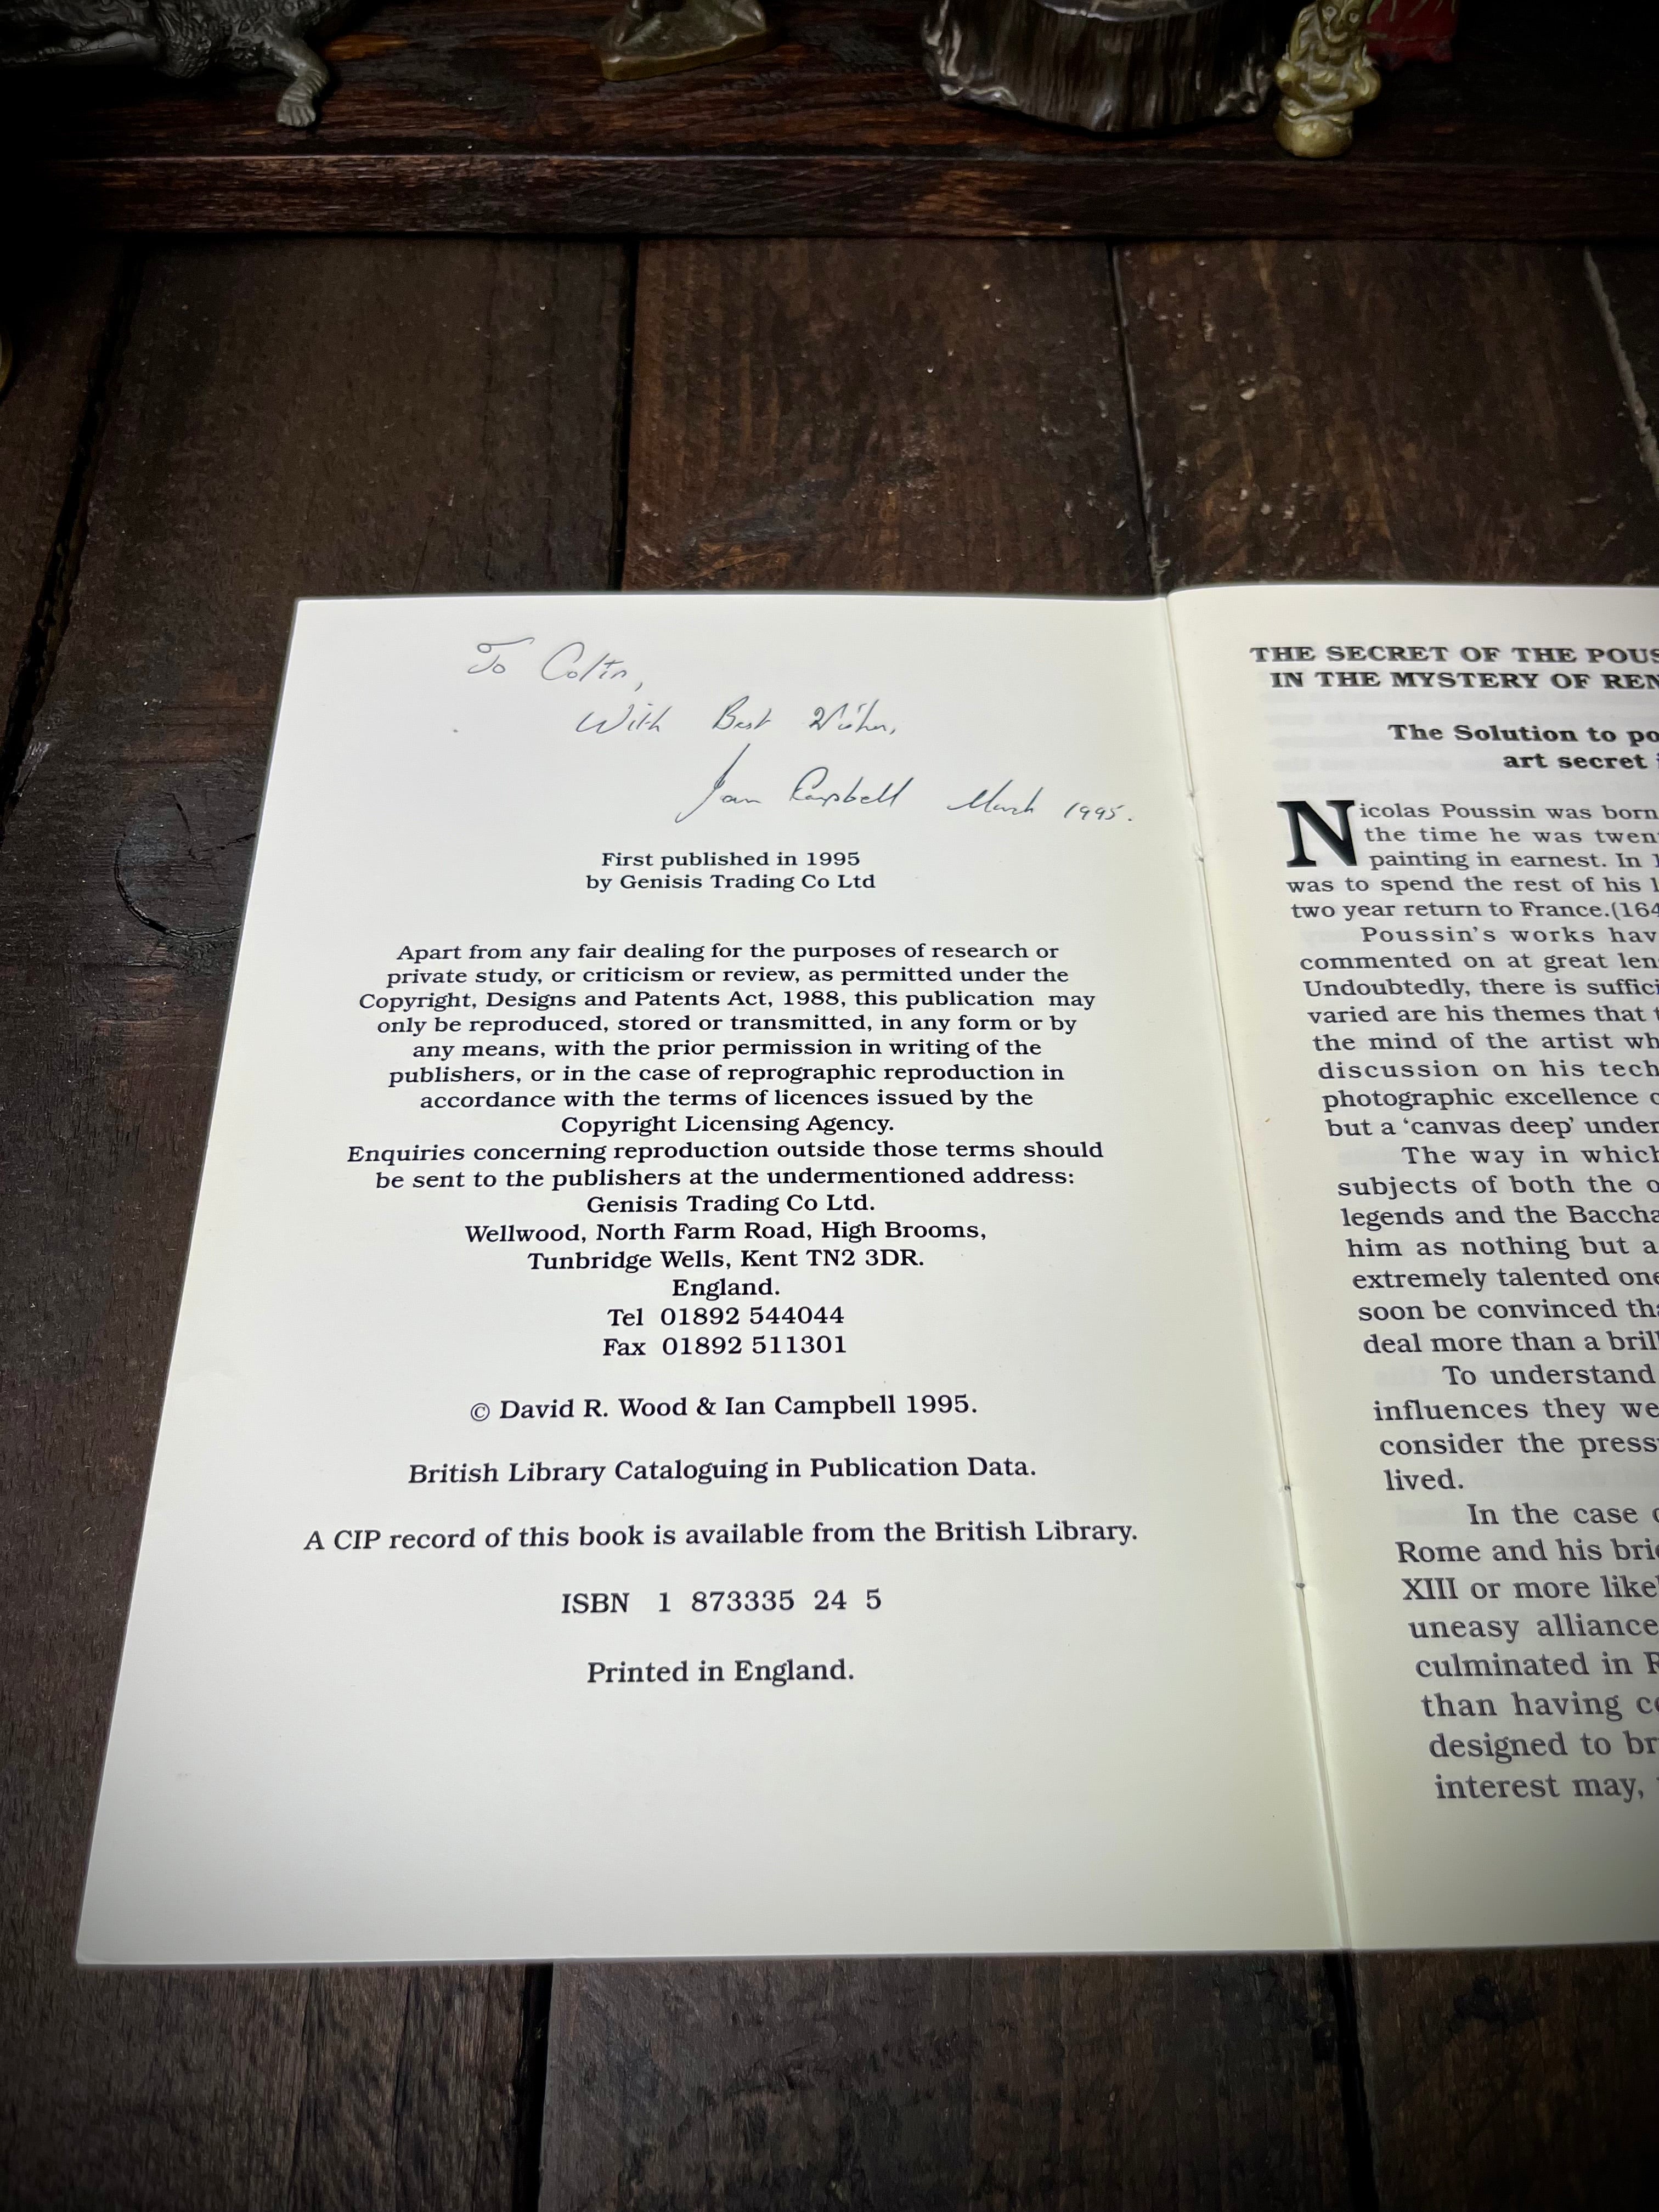 To Colin,
With Best Wishes,
Ian Campbell March 1995.
First published in 1995
by Genisis Trading Co Ltd
Apart from any fair dealing for the purposes of research or
private study, or criticism or review, as permitted under the
Copyright, Designs and Patents Act, 1988, this publication may
only be reproduced, stored or transmitted, in any form or by
any means, with the prior permission in writing of the
publishers, or in the case of reprographic reproduction in
accordance with the terms of licences issued by the
Copyright Licensing Agency.
Enquiries concerning reproduction outside those terms should
be sent to the publishers at the undermentioned address:
Genisis Trading Co Ltd.
Wellwood, North Farm Road, High Brooms,
Tunbridge Wells, Kent TN2 3DR.
England.
Tel 01892 544044
Fax 01892 511301
© David R. Wood & Ian Campbell 1995.
British Library Cataloguing in Publication Data.
A CIP record of this book is available from the British Library.
ISBN 1 873335 24 5
Printed in England.
THE SECRET OF THE POUS
IN THE MYSTERY OF REN
The Solution to po
art secret i
Nicolas Poussin was born
the time he was twen
painting in earnest. In 1
was to spend the rest of his l
two year return to France.(164
Poussin's works hav
commented on at great len
Undoubtedly, there is suffici
varied are his themes that t
the mind of the artist wh
discussion on his tech
photographic excellence o
but a 'canvas deep' under
The way in which
subjects of both the o
legends and the Baccha
him as nothing but a
extremely talented one
soon be convinced tha
deal more than a bril
To understand
influences they we
consider the press
lived.
In the case o
Rome and his brie
XIII or more like
uneasy alliance
culminated in R
than having ce
designed to br
interest may,